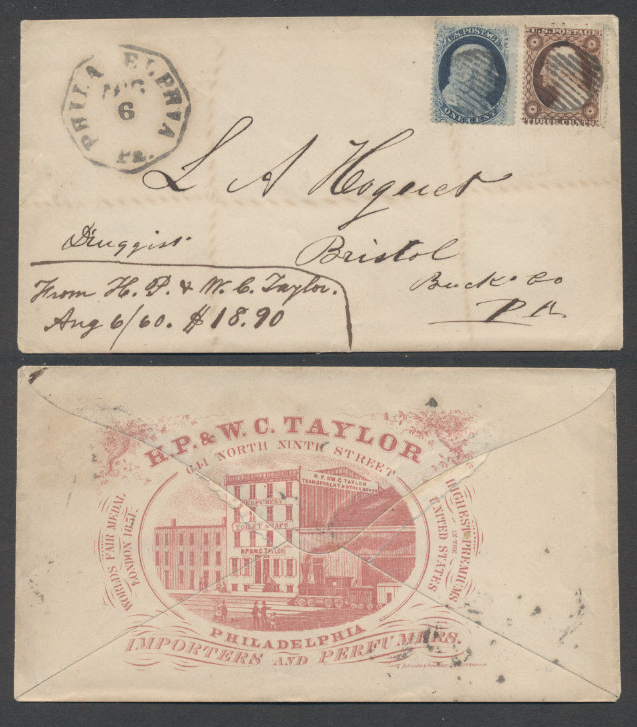 PHILADELPHIA
AUG
6
Pa.
U.S. POSTAGE
ONE CENT
U.S. POSTAGE
THREE CENTS
L A Hoguet
Druggist
Bristol
Bucks Co
PA
From H. P. & W. C. Taylor.
Aug 6/60. $18.90
H.P. & W.C. TAYLOR
641 NORTH NINTH STREET
WORLDS FAIR MEDAL
LONDON 1851.
HIGHEST PREMIUMS
IN THE
UNITED STATES
H.P. & W.C. TAYLOR
TRANSPARENT
PERFUMERY
TOILET SOAPS
H.P. & W.C. TAYLOR
PHILADELPHIA
IMPORTERS AND PERFUMERS.